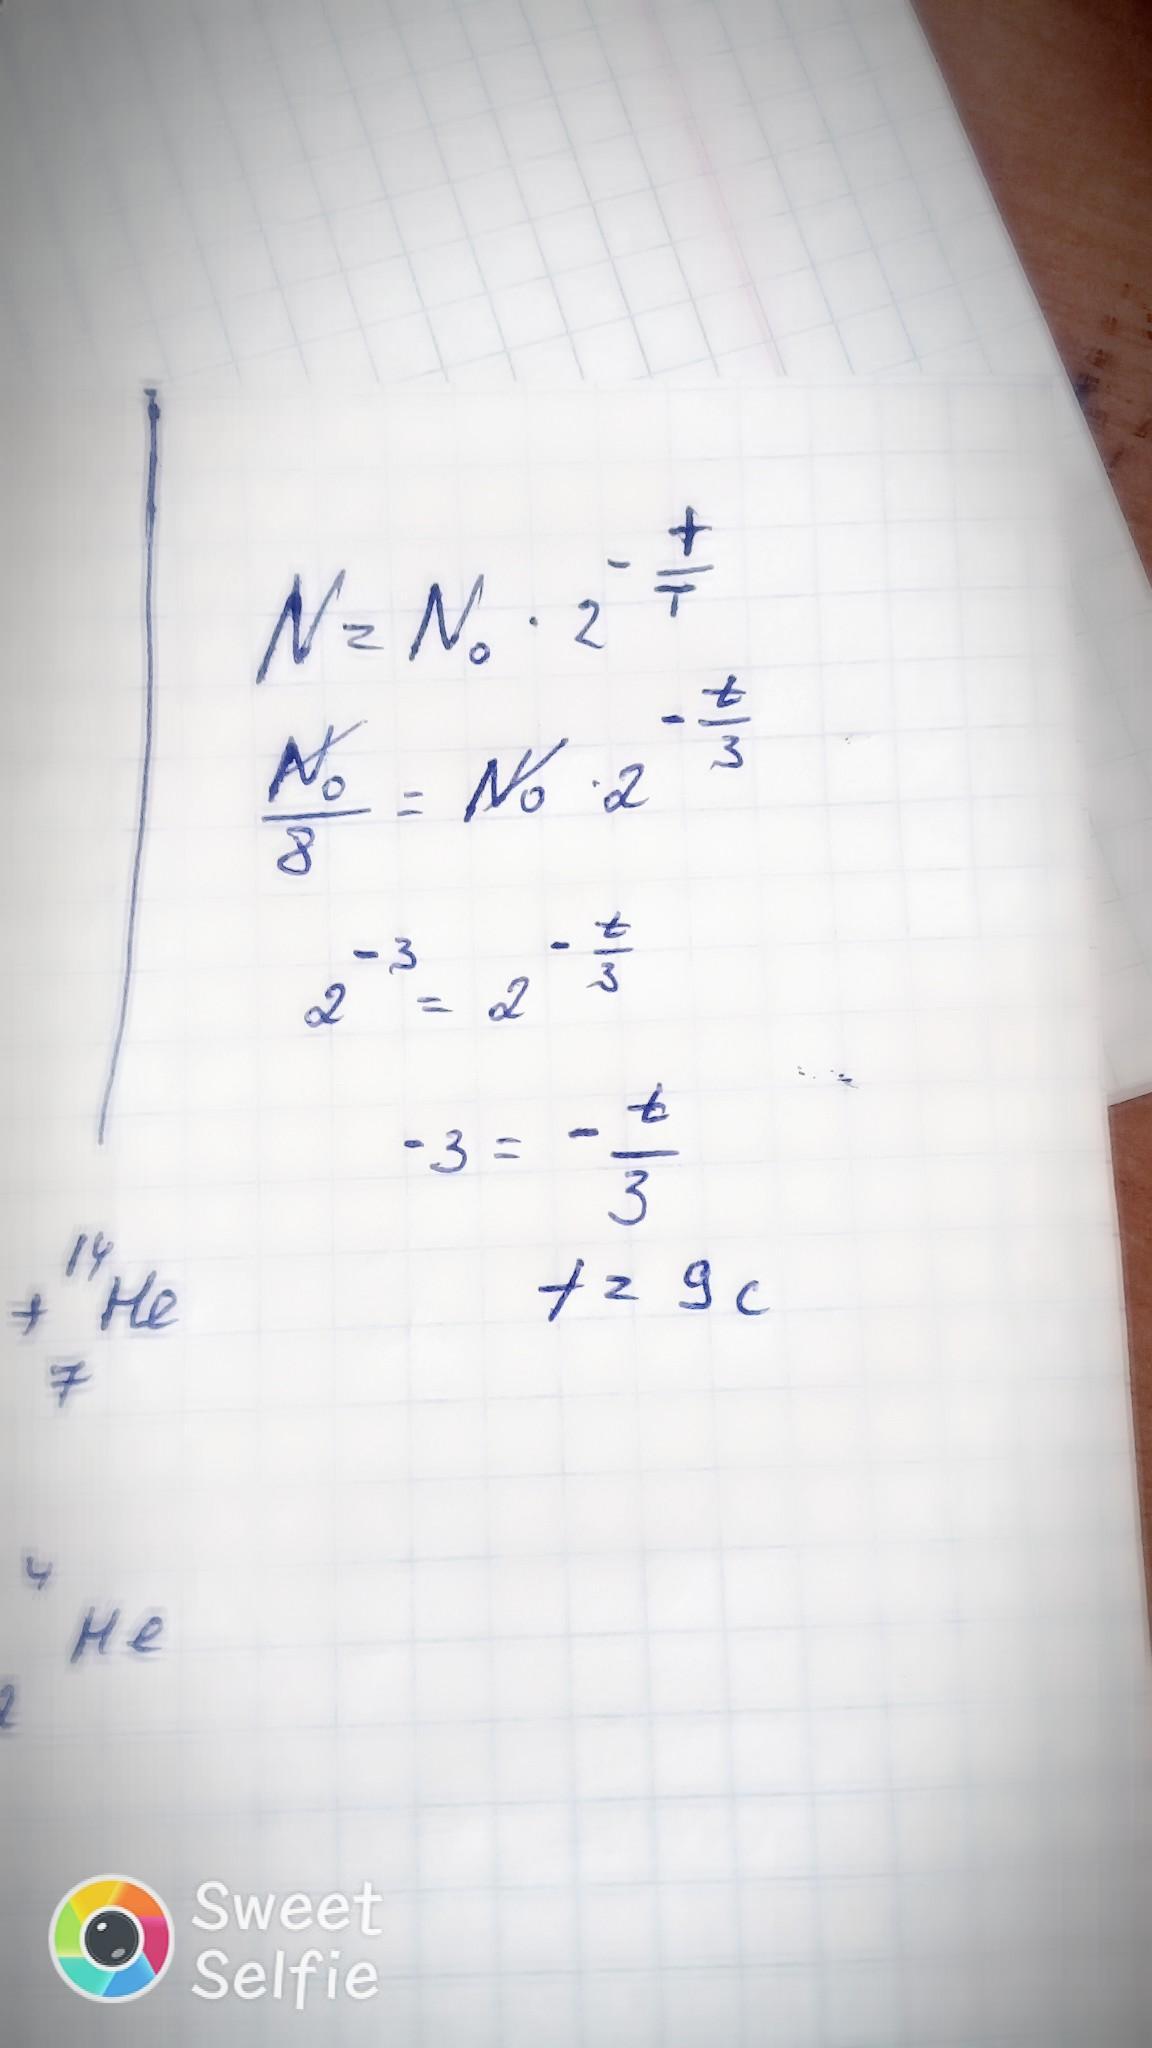 N = N₀ · 2^(-t/T)
N₀/8 = N₀ · 2^(-t/3)
2^(-3) = 2^(-t/3)
-3 = -t/3
t = 9 c
+ ¹⁴₇He
⁴₂He
Sweet
Selfie